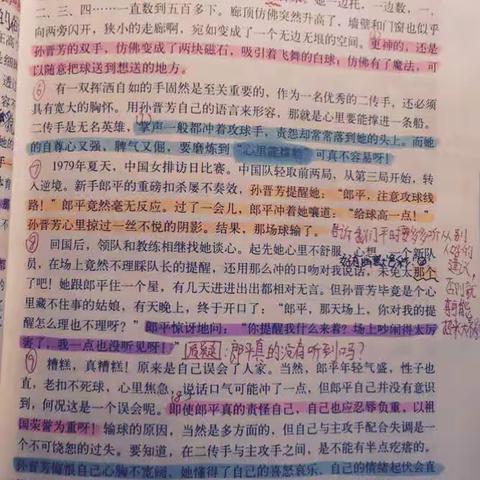 二、三、四……一直数到五百多下。廊顶仿佛突然升高了，墙壁和门窗也似乎
向两旁闪开，狭小的走廊啊，宛如变成了一个无边无垠的空间。更神的，还是
孙晋芳的双手，仿佛变成了两块磁石，吸引着飞舞的白球；仿佛有了魔法，可
以随意把球送到想送的地方。
⑥ 有一双挥洒自如的手固然是至关重要的，作为一名优秀的二传手，还必须
具有宽大的胸怀。用孙晋芳自己的语言来形容，那就是心里要能撑进一条船。
二传手是无名英雄，掌声一般都冲着攻球手，责怨却常常落到她的头上。而她
的自尊心又强，脾气又倔，要磨练到“心里能撑船”可真不容易呀！
⑦ 1979年夏天，中国女排访日比赛。中国队轻取前两局，从第三局开始，转
入逆境。新手郎平的重磅扣杀屡不奏效，孙晋芳提醒她：“郎平，注意攻球线
路！”郎平竟然毫无反应。过了一会儿，郎平冲着她嚷道：“给球高一点！”
孙晋芳心里掠过一丝不悦的阴影。结果，那场球输了。
⑧ 回国后，领队和教练相继找她谈心。起先她心里不舒服
员，在场上竟然不理睬队长的提醒，还用那么冲的口吻对我说话，未免太那个
了吧！她跟郎平住一个屋，有几天进进出出都相对无言。但孙晋芳毕竟是个心
里藏不住事的姑娘，有天晚上，终于开口了：“郎平，那天场上，你对我的提
醒怎么理也不理呀？”郎平惊讶地问：“你提醒我什么来着？场上吵闹得太厉
害了，我一点也没听见呀！”质疑：郎平真的没有听到吗？
⑨ 糟糕，真糟糕！原来是自己误会了人家。当然，郎平年轻气盛，性子也
直，老扣不死球，心里焦急，说话口气可能冲了一点，但郎平自己并没有意识
到，何况这是一个误会呢。即使郎平真的责怪自己，自己也应忍辱负重，以祖
国荣誉为重呀！输球的原因，当然是多方面的，但自己与主攻手配合失调是一
个不可饶恕的过失。要知道，在二传手与主攻手之间，是不能有半点疙瘩的。
孙晋芳悔恨自己心胸不宽阔，她懂得了自己的喜怒哀乐、自己的情绪起伏会直